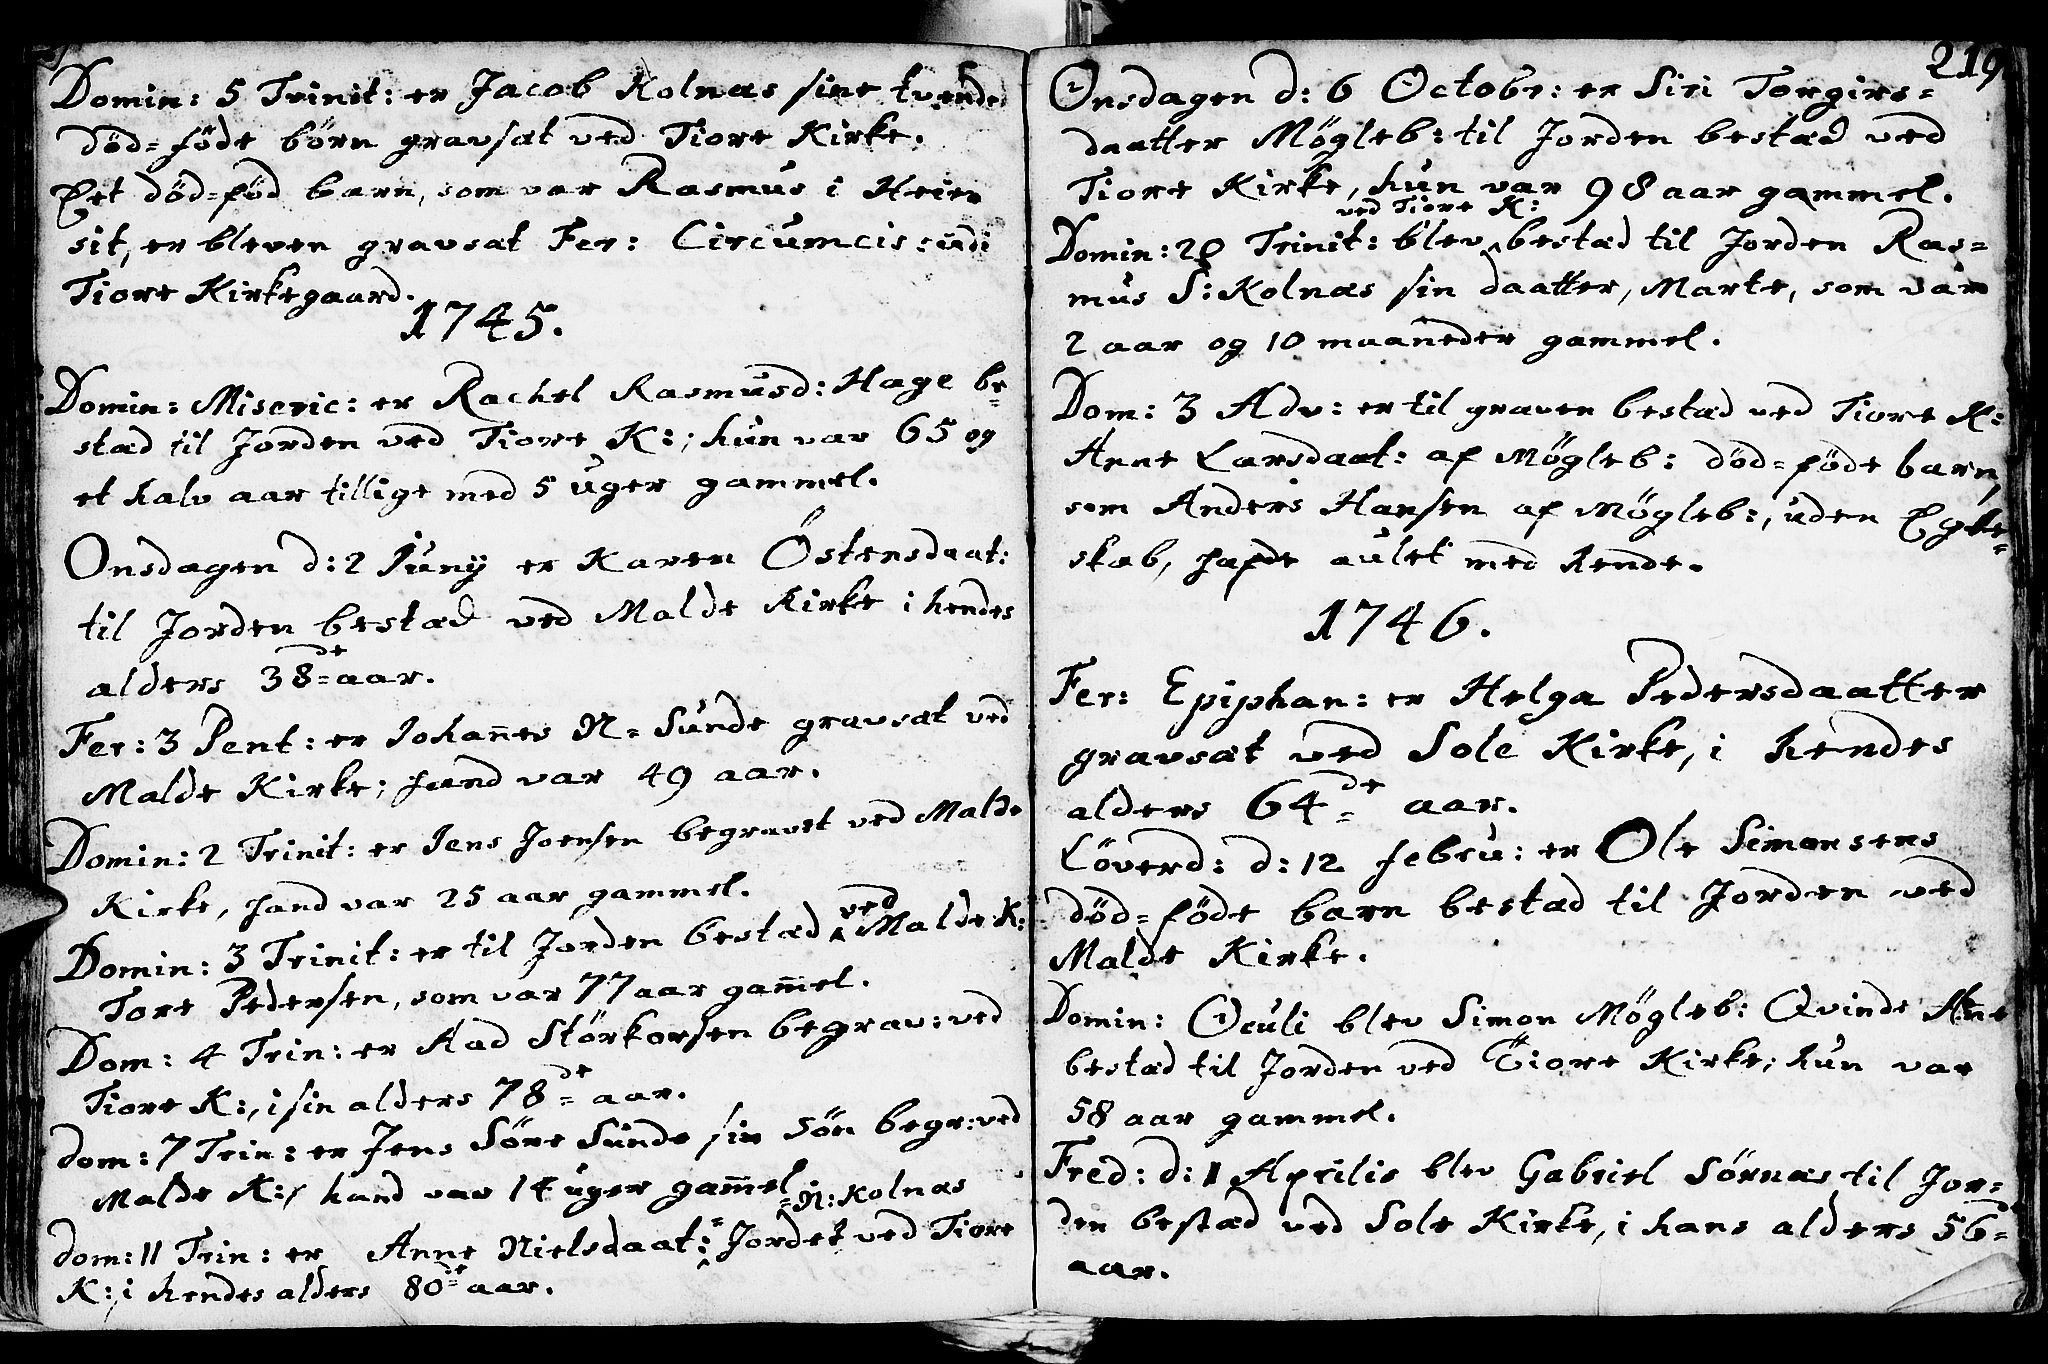 Domin: 5 Trinit: er Jacob Kolnæs sine tvende
död-föde börn gravsat ved Tiore Kirke.
Eet död-föd barn, som var Rasmus i Heien
sit, er bleven gravsat Fer: Circumcis: udi
Tiore Kirkegaard.
1745.
Domin: Miseric: er Rachel Rasmusd: Hage be-
stæd til Jorden ved Tiore K:; hun var 65 og
et halv aar tillige med 5 uger gammel.
Onsdagen d: 2 Juny er Karen Östensdaat:
til Jorden bestæd ved Malde Kirke i hendes
alders 38de aar.
Fer: 3 Pent: er Johañes N-Sunde gravsat ved
Malde Kirke; hand var 49 aar.
Domin: 2 Trinit: er Jens Joensen begravet ved Malde
Kirke, hand var 25 aar gammel.
Domin: 3 Trinit: er til Jorden bestæd ved Malde K:
Tore Pedersen, som var 77 aar gam̃el.
Dom: 4 Trin: er Aad Störkorsen begrav: ved
Tiore K:, i sin alders 78de aar.
dom: 7 Trin: er Jens Söre Sunde sin Sön begr: ved
Malde K:, hand var 14 uger gam̃el
dom: 11 Trin: er Anne Nielsdaat: N: Kolnæs Jordet ved Tiore
K: i hendes alders 80de aar.
219
Onsdagen d: 6 Octobr: er Siri Torgirs-
daatter Mögleb: til Jorden bestæd ved
Tiore Kirke, hun var 98 aar gammel.
Domin: 20 Trinit: blev ved Tiore K: bestæd til Jorden Ras-
mus S: Kolnæs sin daatter, Marte, som var
2 aar og 10 maaneder gammel.
Dom: 3 Adv: er til graven bestæd ved Tiore K:
Anne Larsdaat: af Mögleb: död-föde barn,
som Anders Hansen af Mögleb:, uden Egte-
skab, hafde aulet med hende.
1746.
Fer: Epiphan: er Helga Pedersdaatter
gravsat ved Sole Kirke, i hendes
alders 64de aar.
Löverd: d: 12 febru: er Ole Simonsens
död-föde barn bestæd til Jorden ved
Malde Kirke.
Domin: Oculi blev Simon Mögleb: Qvinde Ane
bestæd til Jorden ved Tiore Kirke; hun var
58 aar gammel.
Fred: d: 1 Aprilis blev Gabriel Sörnæs til Jor-
den bestæd ved Sole Kirke, i hans alders 56de
aar.